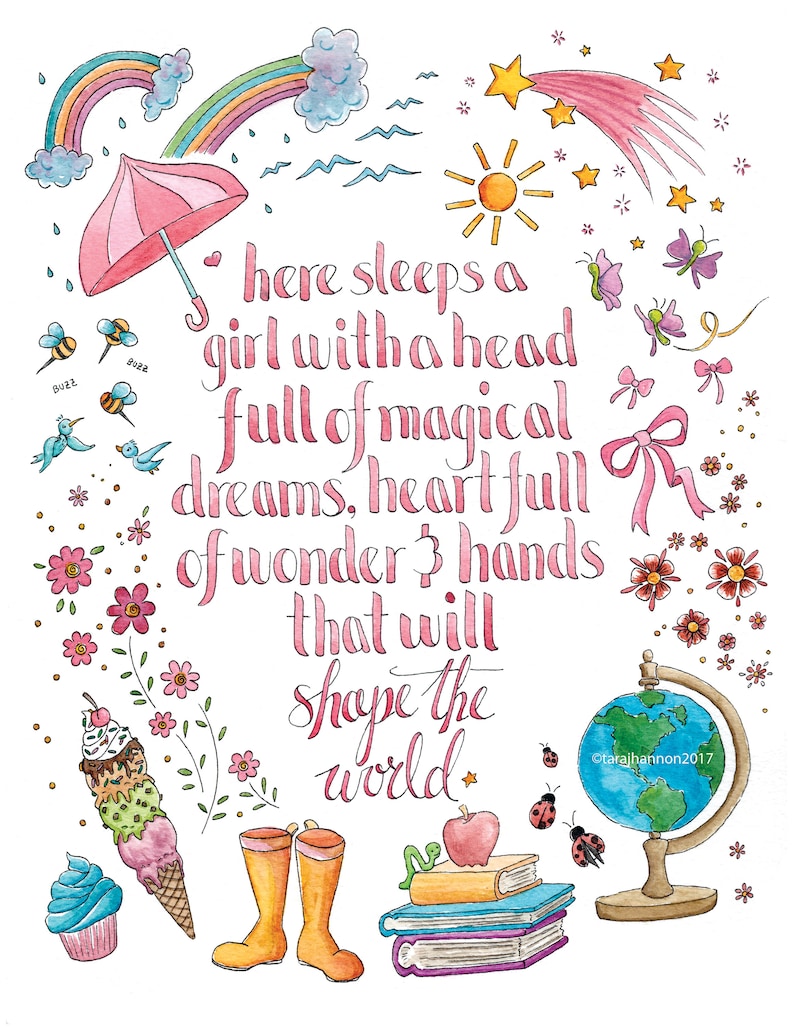 here sleeps a
girl with a head
full of magical
dreams, heart full
of wonder & hands
that will
shape the
world
BUZZ
BUZZ
©tarajhannon2017